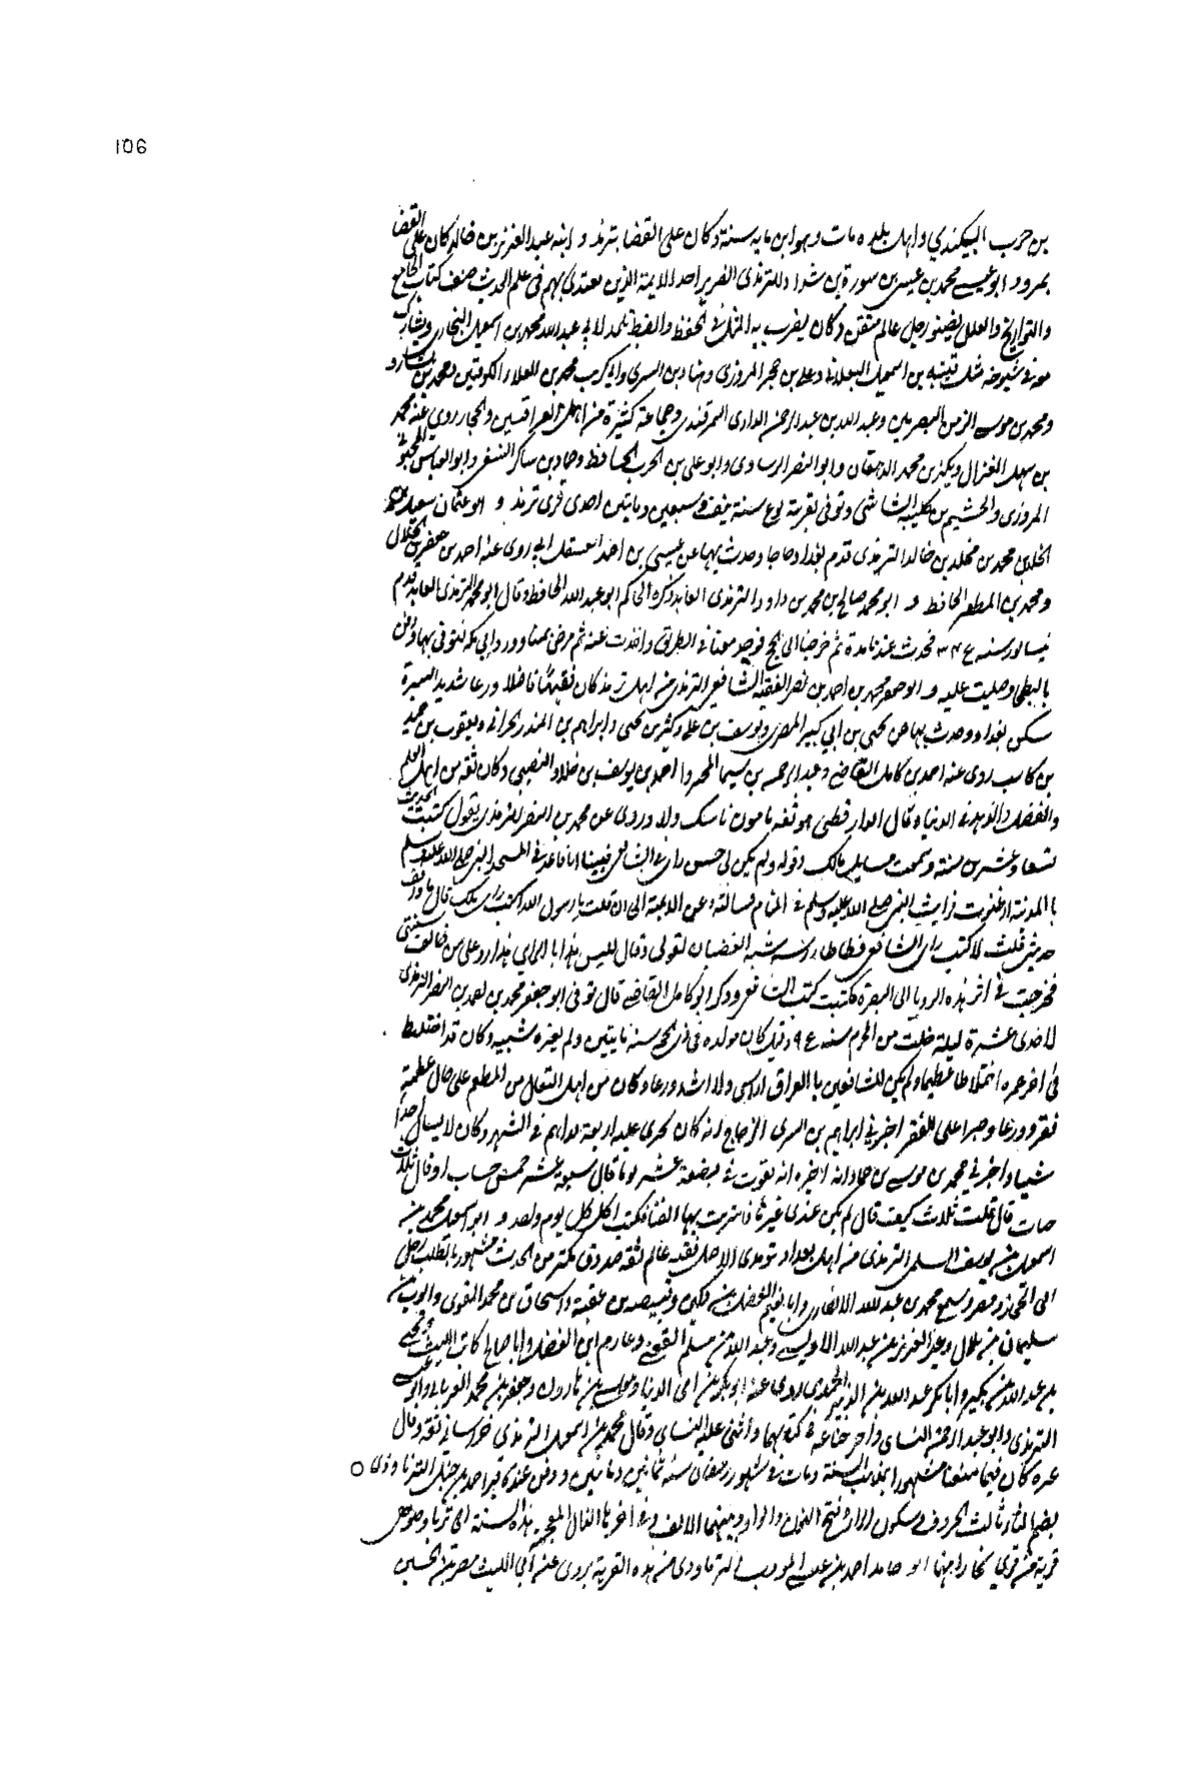 106
بن حرب البيكندي واهل بلده مات وهو ابن مايه سنة وكان على القضا بترمذ و ابنه عبد العزيز بن خالد كان على القضا
بمرو و ابو عيسى محمد بن عيسى بن سورة بن شداد الترمذى الضرير احد الايمة الذين يقتدى بهم فى علم الحديث صنف كتاب الجامع
والتواريخ والعلل تصنيف رجل عالم متقن وكان يضرب به المثل فى الحفظ والضبط تلمذ لابى عبد الله محمد بن اسمعيل البخارى وشارك
معه فى شيوخه مثل قتيبه بن اسمعيل البغلانى وعلى بن حجر المروزى وهناد بن السرى وابى كريب محمد بن العلاء الكوفيين ومحمد بن بشار و
ومحمد بن موسى الزمن البصريين وعبد الله بن عبد الرحمن الدارى السمرقندى وجماعة كثيرة من اهل العراقين والحجاز روى عنه محمد
بن سهل الغزال وبكر بن محمد الدهقان وابو النضر الرسادى وابو على بن الحرب الحافظ وحماد بن شاكر النسفى وابو العباس المحبوبى
المروزى والهيثم بن كليب الشاشى وتوفى بقرية بوغ سنة نيف وسبعين ومايتين احدى قرى ترمذ و ابو عثمان سعيد
محمد بن مخلد بن خالد الترمذى قدم بغداد حاجا وحدث بها عن عيسى بن احمد العسقلانى روى عنه احمد بن جعفر بن الخلال
ومحمد بن المظفر الحافظ و ابو محمد صالح بن محمد بن داود الترمذى العابد ذكره الحاكم ابو عبد الله الحافظ وقال ابو محمد الترمذى العابد قدم
نيسابور سنه ٣٤٤ فحدث عندنا مدة ثم خرجنا الى الحج فوجد معنا فى الطريق واخذت عنه ثم مرض بمنا وورد ابى مكه فتوفى بها ودفن
بالبطحا وصليت عليه و ابو جعفر محمد بن احمد بن نصر الفقيه الشافعى الترمذى من اهل ترمذ كان فقيها فاضلا ورعا شديد السيرة
سكن بغداد وحدث بها عن يحيى بن ابي كبير المصرى ويوسف بن على وكثير بن يحيى وابراهيم بن المنذر الحزامى ويعقوب بن حميد
بن كاسب روى عنه احمد بن كامل القاضى وعبد الرحمن بن سيما المجبر واحمد بن يوسف بن خلاد النصيبى وكان ثقة من اهل العلم
والفضل والزهد فى الدنيا وقال الدارقطنى هو ثقه مامون ناسك ولا وروى عن محمد بن النضر الترمذى يقول كتبت الحديث
تسعا وعشرين سنة وسمعت مسايل مالك وقوله ولم يكن لى حسن راى فى الشافعى فبينا انا قاعد فى المسجد النبى صلى الله عليه وسلم
بالمدينة اذ غفوت فرايت النبى صلى الله عليه وسلم فى المنام فسالته عن الاعبة الى ان قلت يا رسول الله اكتب راى مالك قال ما وافق
حديثى قلت لاكتب راى الشافعى فطاطا راسه شبه الغضبان لقولى وقال ليس هذا بالراى هذا رد على من خالف سنتى
فخرجت فى اثر هذه الرويا الى البصرة فكتبت كتب الشافعى وذكر ابو كامل القاضى قال توفى ابو جعفر محمد بن احمد بن النضر الترمذى
لاحدى عشرة ليلة خلت من المحرم سنه ٢٩٤ وقيل كان مولده فى ذى الحج سنة مايتين ولم يغيره شيبه وكان قد اختلط
فى اخر عمره اختلاطا عظيما ولم يكن للشافعيين بالعراق اراس ولا اشد ورعا وكان من اهل التقلل من المطعم على حال عظيمة
فقر وورعا وصبرا على الفقر اخبرنى ابراهيم بن السرى الزجاج انه كان يجرى عليه اربعة دراهم فى الشهر وكان لا يسال احدا
شيا واخبرنى محمد بن موسى بن حماد انه اخبره انه تقوت فى بضعة عشر يوما قال سبعة عشر خمس حساب او قال ثلث
حات قال قلت ثلاث كيف قال لم يكن عندى غيرها فاشتريت بها لفتا فكنت اكل كل يوم واحد و ابو اسمعيل محمد بن
اسمعيل بن يوسف السلمى الترمذى من اهل بغداد ترمذى الاصل فقيه عالم ثقه صدوق مكثر من الحديث مشهور بالطلب رحل
الى الحجاز ومصر وسمع محمد بن عبد الله الانصارى وابا نعيم الفضل بن دكين وقبيصه بن عقبة واسحاق بن محمد الفروى وايوب بن
سليمان بن بلال وعبد العزيز بن عبد الله الاويسى وعبد الله بن مسلم القعنبى وعارم ابن الفضل وابا صالح كاتب الليث ويحيى
بن عبد الله بن بكير وابا بكر عبد الله بن الزبير الحميدى روى عنه ابو بكر بن ابى الدنيا وموسى بن هارون وجعفر بن محمد الفريابى وابو عيسى
الترمذى وابو عبد الرحمن النساى واخرجا عنه فى كتابيهما واثنى عليه النساى وقال محمد بن اسمعيل الترمذى خراسانى ثقة وقال
غيره كان فهما متقنا مشهورا بمذهب السنة ومات فى شهر رمضان سنه ثمانين ومايتين ودفن عند قبر احمد بن حنبل الترناوذى ○
بضم التاء ثالث الحروف وسكون الراء وفتح النون والواو وبينهما الالف وفى اخرها الذال المعجمة هذه النسبة الى ترناوذ وهى
قرية من قرى بخارا منها ابو حامد احمد بن عيسى المودب الترناوذى من هذه القرية يروى عن ابى الليث نصر بن الحسين